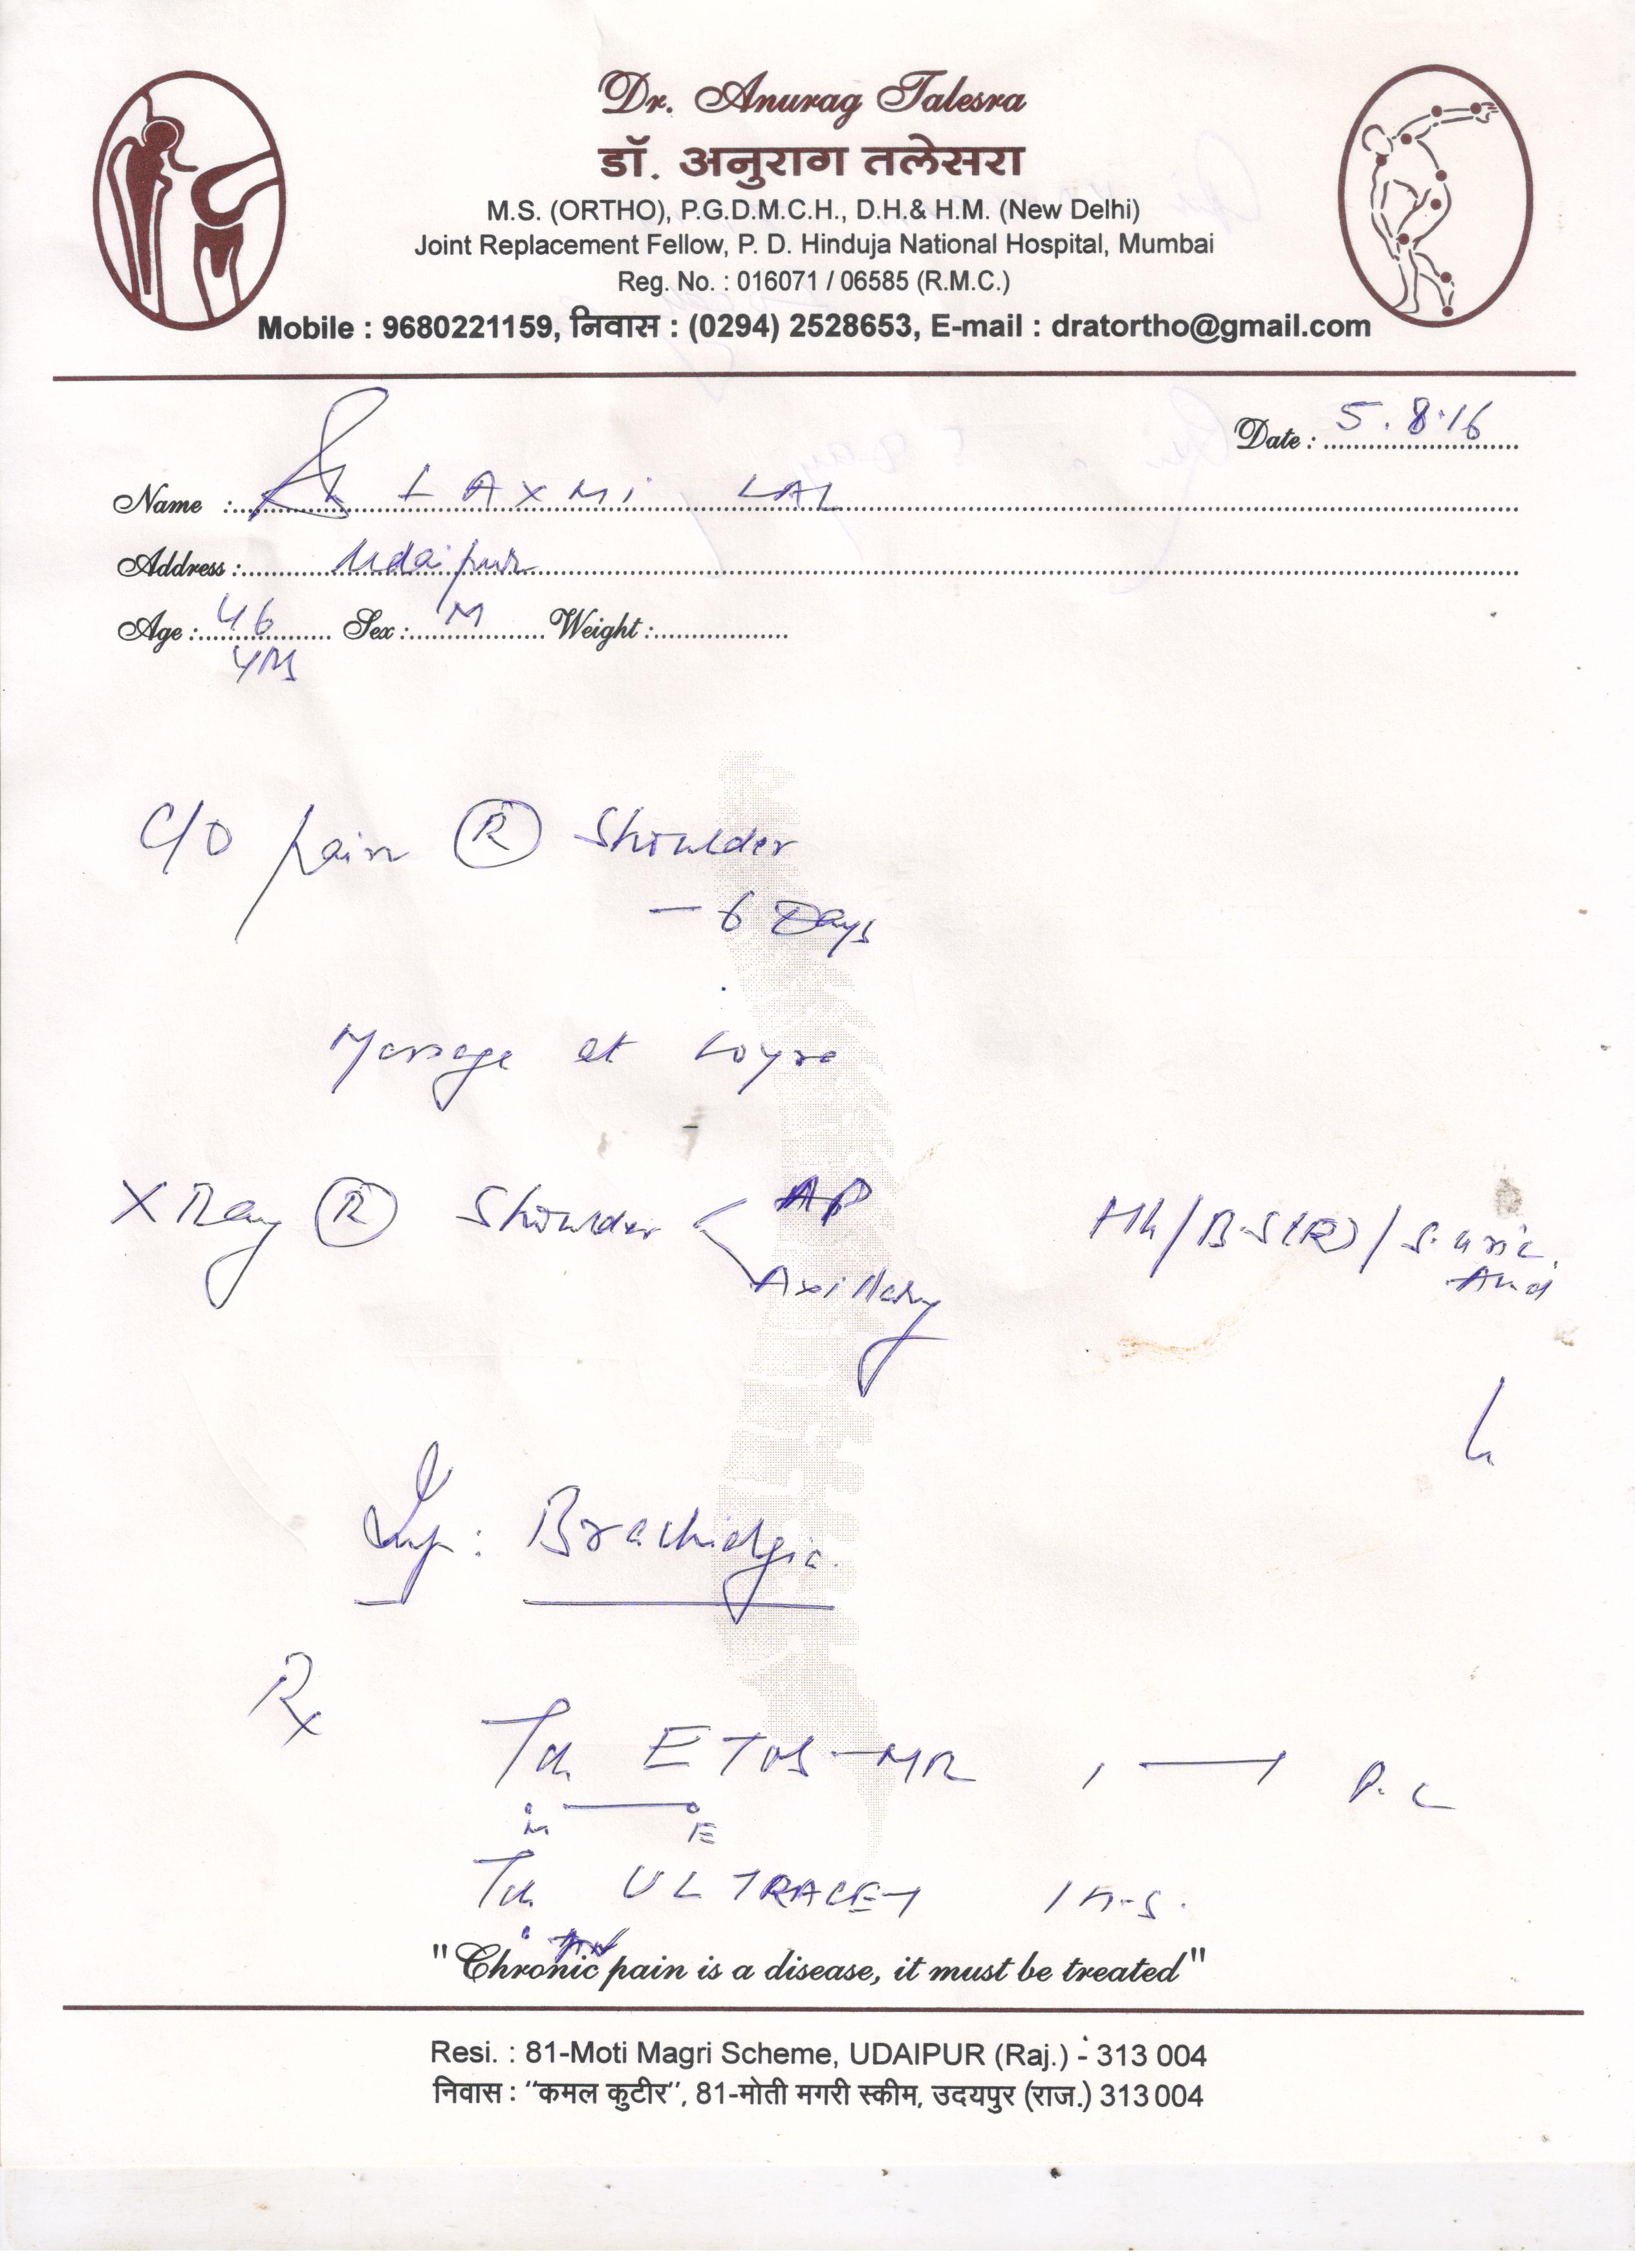 Dr. Anurag Talesra
डॉ. अनुराग तलेसरा
M.S. (ORTHO), P.G.D.M.C.H., D.H.& H.M. (New Delhi)
Joint Replacement Fellow, P. D. Hinduja National Hospital, Mumbai
Reg. No. : 016071 / 06585 (R.M.C.)
Mobile : 9680221159, निवास : (0294) 2528653, E-mail : dratortho@gmail.com
Date : 5.8.16
Name : LAXMI LAL
Address : Udaipur
Age : 46 Sex : M Weight :
yrs
C/O pain (R) Shoulder
- 6 Days
Massage at
X Ray (R) Shoulder < AP
Axillary
/ B.S(R) / S. uric
Acid
Imp : Brachialgia
Rx
ETOS-MR 1 — 1 P.C
M — E
ULTRACET 1 H.S.
"Chronic pain is a disease, it must be treated"
Resi. : 81-Moti Magri Scheme, UDAIPUR (Raj.) - 313 004
निवास : ‘‘कमल कुटीर’’, 81-मोती मगरी स्कीम, उदयपुर (राज.) 313 004